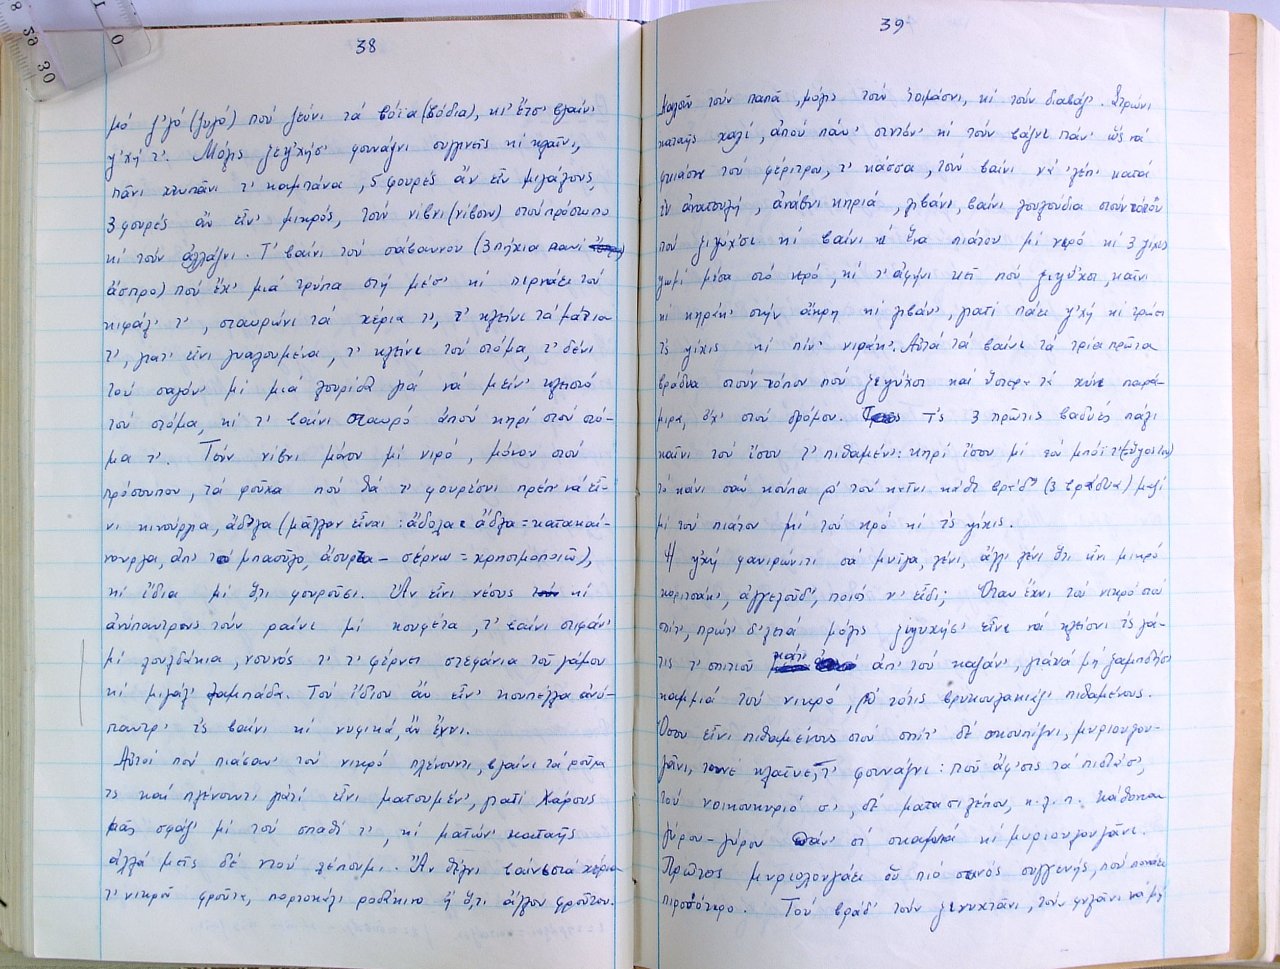 38
μό ζ'γό (ζυγό) πού ζεύνι τά βόϊα (βόδια), κι' ἔτσ' βγαίν'
ψ'χή τ'. Μόλις ξεψ'χήσ' φουνάζνι συγγινεῖς κί κλαῖνι,
πᾶνι χτυπᾶνι τ' καμπάνα, 5 φουρές ἄν εἶν μιγάλους,
3 φουρές ἄν εἶν' μικρός, τούν νίβνι (νίβουν) στού πρόσωπο
κί τούν ἀλλάζνι. Τ' βαίνι τού σάβαννου (3 πήχια πανί
ἄσπρο) πού ἔχ' μιά τρύπα στή μέσ' κί πιρνάει τού
κιφάλ' τ', σταυρώνι τά χέρια τ', τ' κλείνι τά μάτια
τ', γιατ' εἶνι γυαλουμένα, τ' κλείνι τού στόμα, τ' δένι
τού σαγόν' μί μιά λουρίδα γιά νά μείν' κλειστό
τού στόμα, κί τ' βαίνι σταυρό ἀπού κηρί στού στό-
μα τ'. Τούν νίβνι μόνου μί νιρό, μόνου στού
πρόσουπου, τά ροῦχα πού θά τ' φουρέσνι πρέπ' νά εἶ-
νι κινούργια, ἄδ'λα (μᾶλλον εἶναι: ἄδολα ἄδλα = κατακαί-
νουργα, ἀπ' τό μπαοῦλο, ἄσυρτα - σέρνω = χρησιμοποιῶ),
κί ἴδια μί ὅ,τι φουροῦσι. Ἄν εἶνι νέους κί
ἀνύπαντρους τούν ραίνι μί κουφέτα, τ' βαίνι στιφάν'
μί λουλδάκια, νουνός τ' τ' φέρνει στεφάνια τοῦ γάμου
κί μιγάλ' λαμπάδα. Τού ἴδιου ἄν εἶν' κουπέλλα ἀνύ-
παντρ' τς βαίνι κί νυφικά, ἄν ἔχνι.
Αὐτοί πού πιάσαν' τού νικρό πλένουντι, βγαίνι τά ροῦχα
τς καί πλένουντι γιατί εἶνι ματουμέν', γιατί Χάρους
μᾶς σφάζ' μί τού σπαθί τ', κί ματών' καταῆς
ἀλλά μεῖς δέ τού λέπουμι. Ἄν θέλνι βαίνε στά χέρια
τ' νικροῦ φροῦτα, πορτοκάλι ροδάκινο ἤ ὅ,τι ἄλλου φροῦτου.
39
Καλοῦν τούν παπᾶ, μόλις τούν τοιμάσνι, κί τούν διαβάζ'. Στρώνι
καταῆς χαλί, ἀπού πάν' σιντόν' κί τούν βάζνι πάν' ὥς νά
φκιάσνι τού φέριτρου, τ' κάσσα, τούν βαίνι νά 'λέπ' κατά
τν ἀνατουλή, ἀνάβνι κηριά, λιβάνι, βαίνι λουλούδια στούν τόπου
πού ξιψύχσι κί βαίνι κί ἕνα πιάτου μί νιρό κί 3 ψίχις
ψωμί μέσα στό νιρό, κί τ' ἀφήνι κεῖ πού ξιψύχσι, καῖνι
κί κηράκ' στήν ἄκρη κί λιβάν', γιατί πάει ψ'χή κί τρώει
τς ψίχις κί πίν' νιράκ'. Αὐτά τά βαίνε τά τρία πρῶτα
βράδυα στούν τόπου πού ξεψύχσι καί ὕστερα τά χύνε παρά-
μιρα, ὄχ' στού δρόμου. Τς 3 πρῶτις βαδυές πάλι
καῖνι τού ἴσου τ' πιθαμέν': κηρί ἴσου μί τού μπόϊ τ' (ὕψος του)
τό κάνι σάν κούπα κί τού καῖνι κάθι βράδ' (3 βράδυα) μαζί
μί τού πιάτου μί τού νιρό κί τς ψίχις.
Ἡ ψ'χή φανιρώνιτι σά μυῖγα, λένι, ἄλλι λένι ὅτι εἶνι μικρό
κοριτσάκ', ἀγγελούδ', ποιός ν' εἶδι; Ὅταν ἔχνι τού νικρό στού
σπίτ', πρώτ' δ'λειά μόλις ξιψυχήσ' εἶνε νά κλείσνι τς γά-
τις τ' σπιτιοῦ κάτ' ἀπ' τού καζάν', γιά νά μή ζαμπδήσι
καμμιά τού νικρό, κί τότις βρυκουλακιάζι πιθαμένους.
Ὅσου εἶνι πιθαμένους στού σπίτ' δέ σκουπίζνι, μυριουλου-
γᾶνι, τούνε κλαῖνε, τ' φουνάζνι: ποῦ ἄφ'σις τά πιδιά σ',
τού νοικουκυριό σ', δέ ματασιλέπου, κ.λ.π. Κάθονται
γύρου - γύρου πάν' σί σκαμνιά κί μυριουλουγᾶνι.
Πρῶτος μυριολουγάει οὑ πιό στενός συγγενής, πού πονάει
πιρσότερο. Τού βράδ' τούν ξενυχτᾶνι, τούν φυλᾶνι νά μή